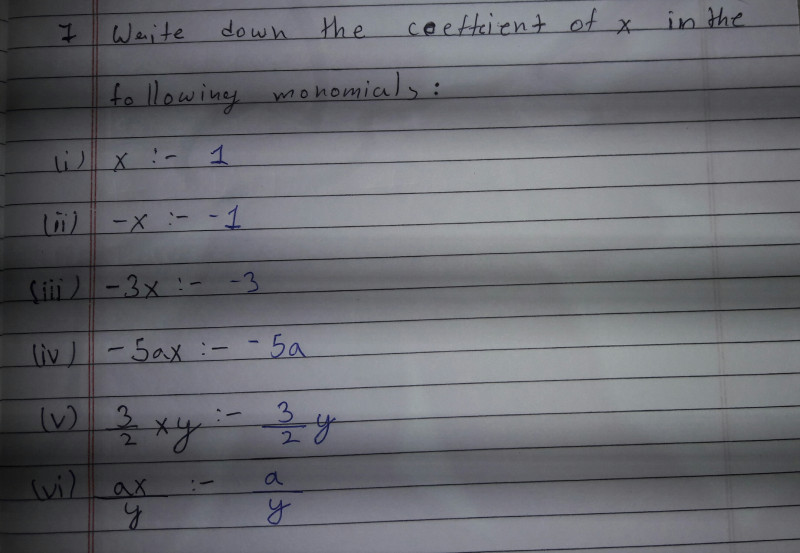 7 Write down the coefficient of x in the
following monomials:
(i) x :- 1
(ii) -x :- -1
(iii) -3x :- -3
(iv) -5ax :- -5a
(v) 3/2 xy :- 3/2 y
(vi) ax/y :- a/y